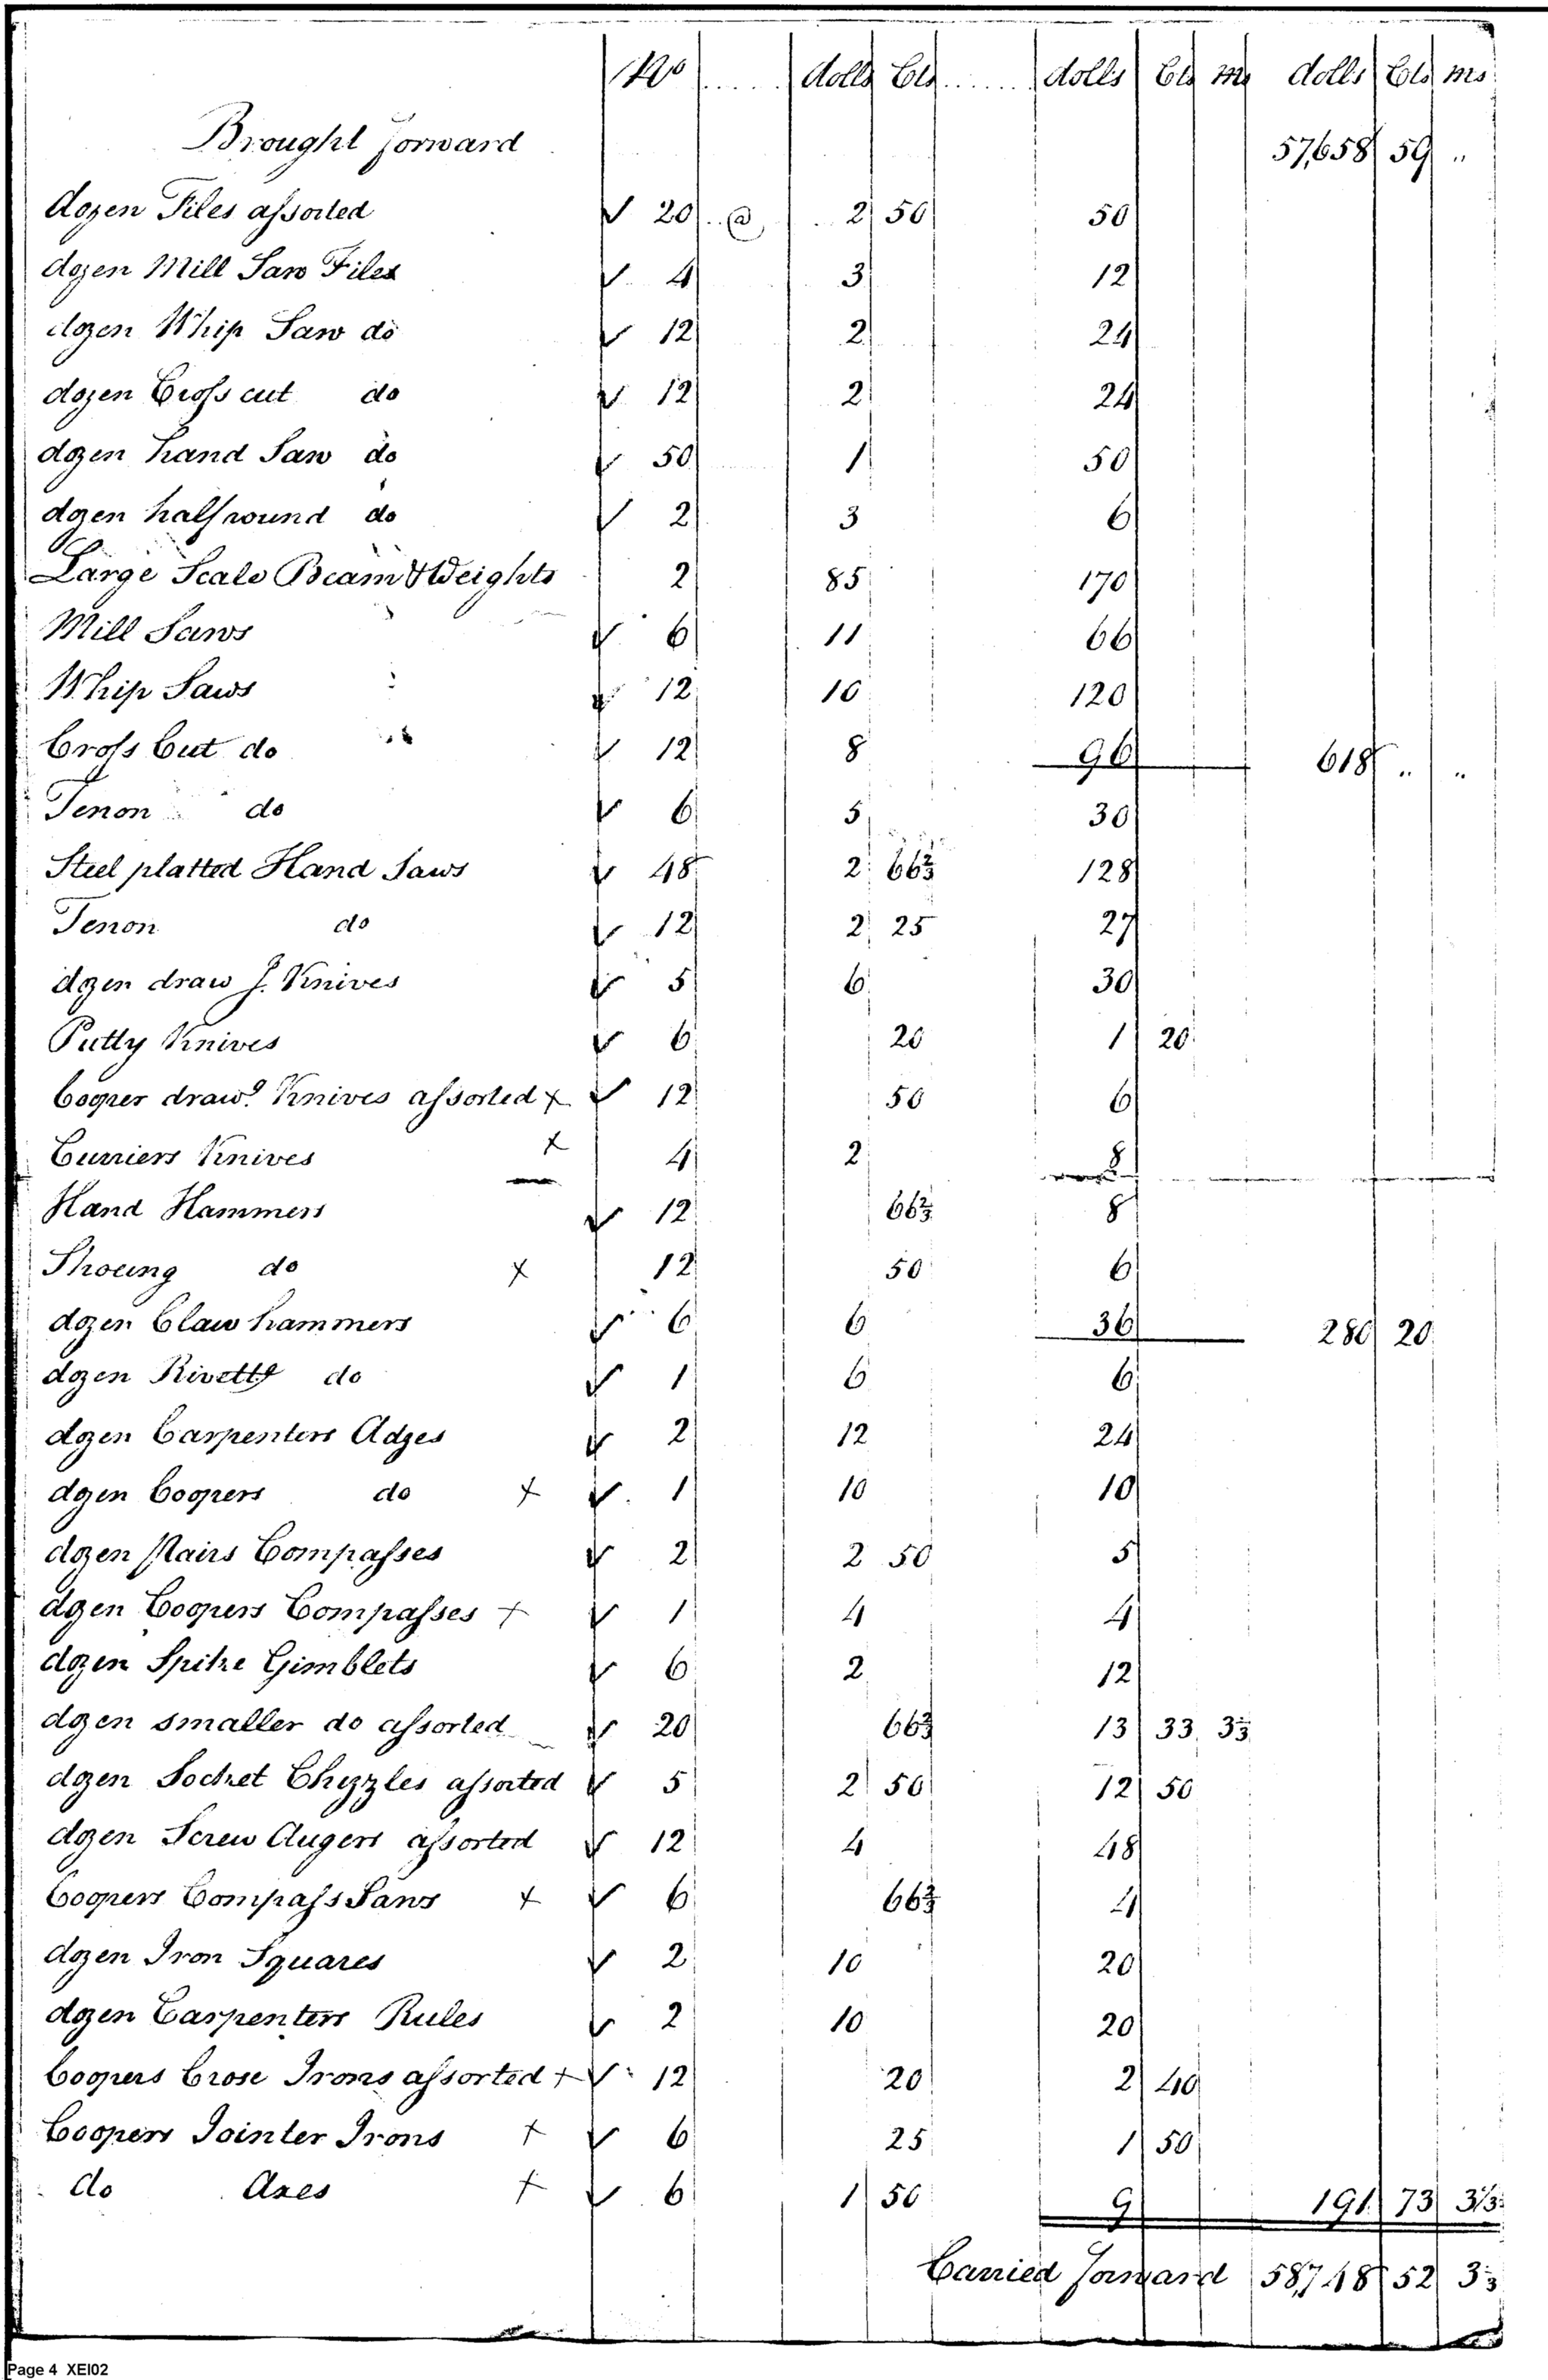 No ..... dolls Cts ........ dolls Cts ms dolls Cts ms
Brought forward 57,658 59 "
dozen Files assorted √ 20 .. @ .. 2 50 50
dozen Mill Saw Files √ 4 3 12
dozen Whip Saw do √ 12 2 24
dozen Cross cut do √ 12 2 24
dozen hand Saw do √ 50 1 50
dozen half round do √ 2 3 6
Large Scale Beam & Weights 2 85 170
Mill Saws √ 6 11 66
Whip Saws √ 12 10 120
Cross Cut do √ 12 8 96 618 " "
Tenon do √ 6 5 30
Steel platted Hand Saws √ 48 2 66⅔ 128
Tenon do √ 12 2 25 27
dozen draw g. Knives √ 5 6 30
Putty Knives √ 6 20 1 20
Cooper drawg Knives assorted x √ 12 50 6
Curriers Knives x 4 2 8
Hand Hammers √ 12 66⅔ 8
Shoeing do x 12 50 6
dozen Claw hammers √ 6 6 36 280 20
dozen Rivettg do √ 1 6 6
dozen Carpenters Adzes √ 2 12 24
dozen Coopers do x √ 1 10 10
dozen Pairs Compasses √ 2 2 50 5
dozen Coopers Compasses x √ 1 4 4
dozen Spike Gimblets √ 6 2 12
dozen smaller do assorted √ 20 66⅔ 13 33 3⅓
dozen Socket Chizzles assorted √ 5 2 50 12 50
dozen Screw Augers assorted √ 12 4 48
Coopers Compass Saws x √ 6 66⅔ 4
dozen Iron Squares √ 2 10 20
dozen Carpenters Rules √ 2 10 20
Coopers Crose Irons assorted x √ 12 20 2 40
Coopers Jointer Irons x √ 6 25 1 50
do Axes x √ 6 1 50 9 191 73 3⅓
Carried forward 58,748 52 3⅓
Page 4 XEI02